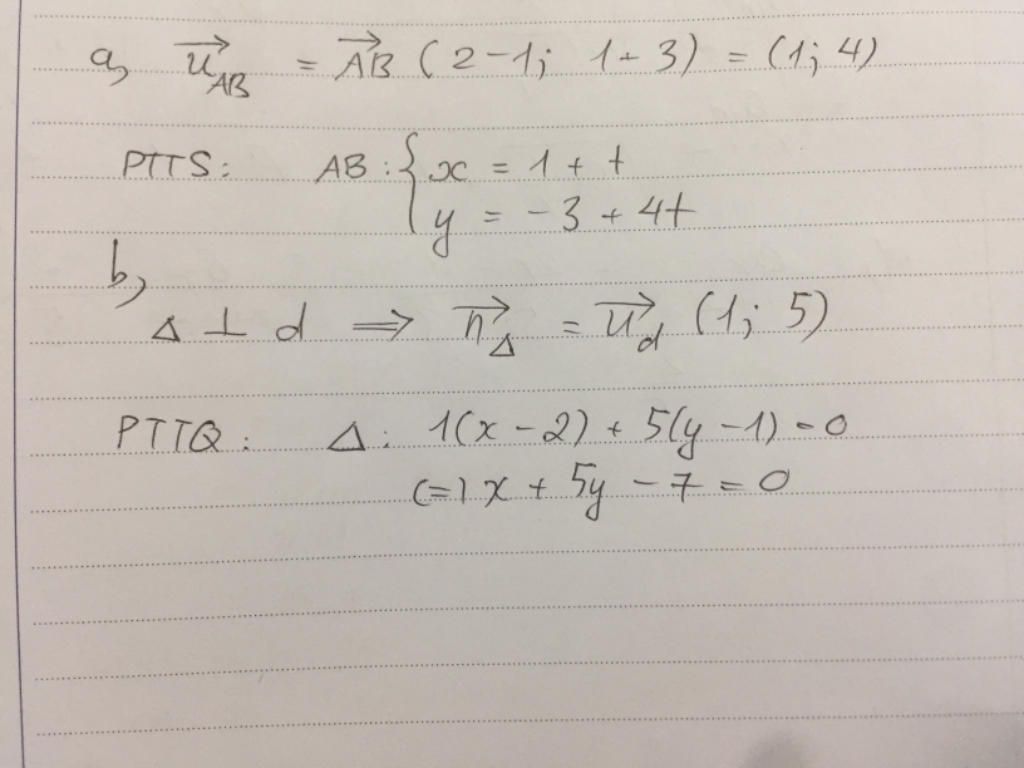 a, $\overrightarrow{u}_{AB} = \overrightarrow{AB} (2-1; 1+3) = (1; 4)$
PTTS: AB: { x = 1 + t
y = -3 + 4t
b,
$\Delta \perp d \Rightarrow \overrightarrow{n}_{\Delta} = \overrightarrow{u}_{d} (1; 5)$
PTTQ: Δ: 1(x - 2) + 5(y - 1) = 0
(=) x + 5y - 7 = 0